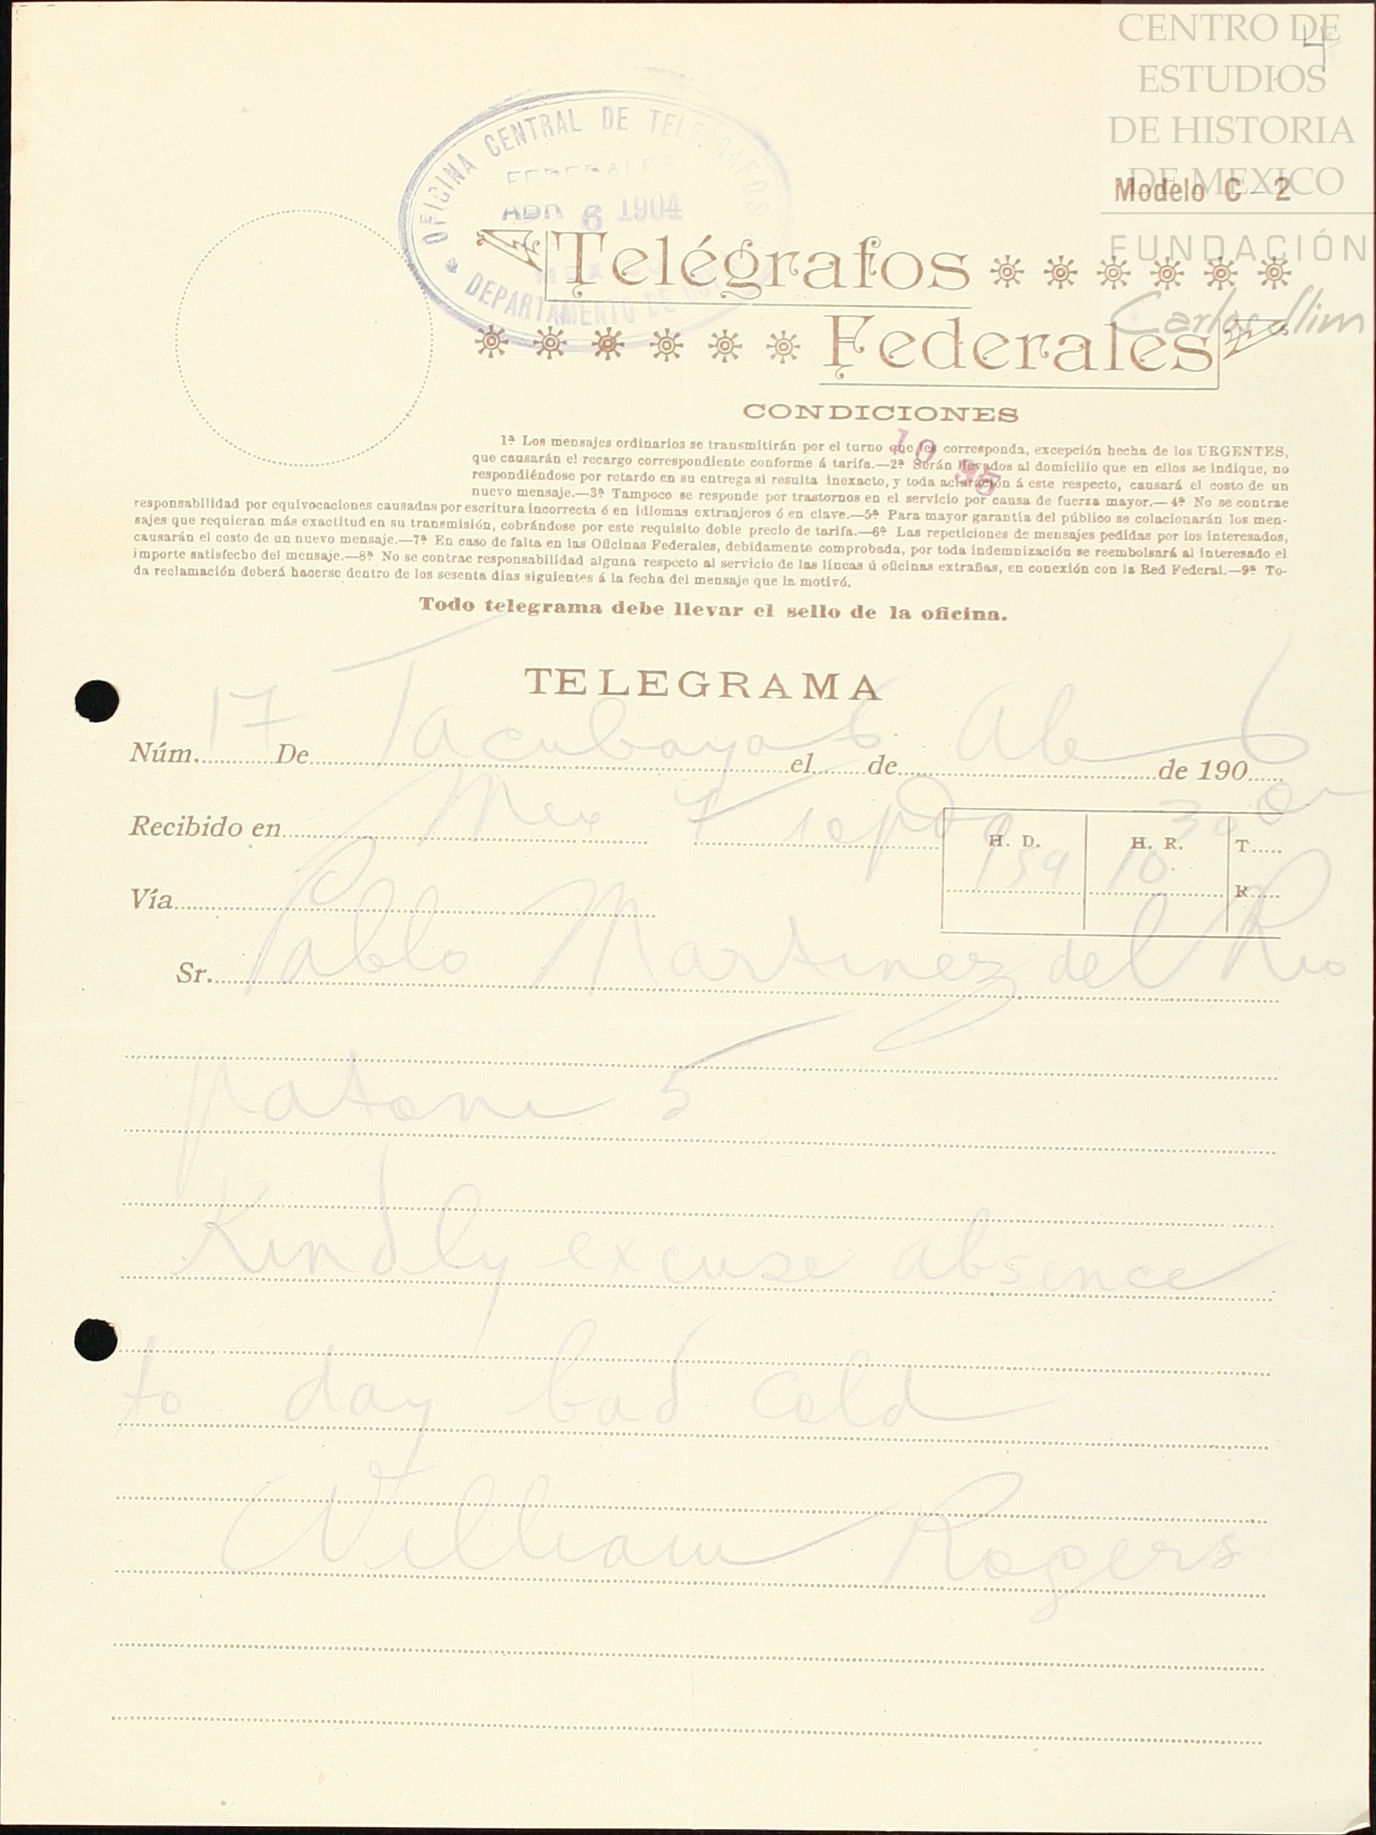 CENTRO DE
ESTUDIOS
DE HISTORIA
DE MEXICO
FUNDACIÓN
Carlos Slim
4
Modelo C-2
OFICINA CENTRAL DE TELEGRAFOS
FEDERALES
ABR 6 1904
MEXICO
DEPARTAMENTO DE
Telégrafos
Federales
CONDICIONES
10 35
1ª Los mensajes ordinarios se transmitirán por el turno que les corresponda, excepción hecha de los URGENTES,
que causarán el recargo correspondiente conforme á tarifa.—2ª Serán llevados al domicilio que en ellos se indique, no
respondiéndose por retardo en su entrega si resulta inexacto, y toda aclaración á este respecto, causará el costo de un
nuevo mensaje.—3ª Tampoco se responde por trastornos en el servicio por causa de fuerza mayor.—4ª No se contrae
responsabilidad por equivocaciones causadas por escritura incorrecta ó en idiomas extranjeros ó en clave.—5ª Para mayor garantía del público se colacionarán los men-
sajes que requieran más exactitud en su transmisión, cobrándose por este requisito doble precio de tarifa.—6ª Las repeticiones de mensajes pedidas por los interesados,
causarán el costo de un nuevo mensaje.—7ª En caso de falta en las Oficinas Federales, debidamente comprobada, por toda indemnización se reembolsará al interesado el
importe satisfecho del mensaje.—8ª No se contrae responsabilidad alguna respecto al servicio de las líneas ú oficinas extrañas, en conexión con la Red Federal.—9ª To-
da reclamación deberá hacerse dentro de los sesenta días siguientes á la fecha del mensaje que la motivó.
Todo telegrama debe llevar el sello de la oficina.
TELEGRAMA
Núm. 17 De Tacubaya el 6 de Ab de 190
Recibido en Mex 7
H. D. H. R. T
10 R
Vía
Sr. Pablo Martinez del Rio
patoni 5
Kindly excuse absence
to day bad cold
William Rogers